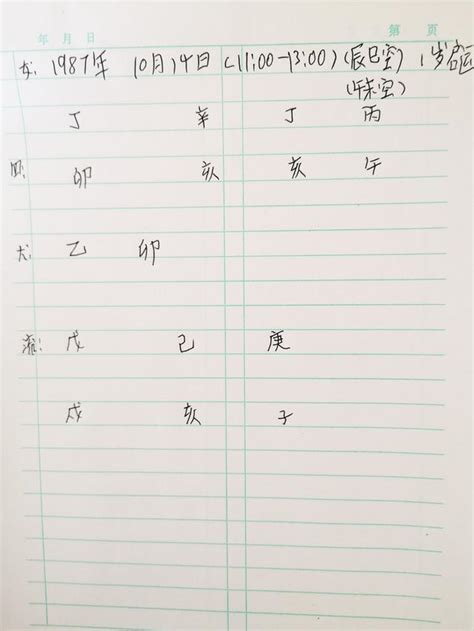 年 月 日 第 页
女: 1987年 10月14日 (11:00-13:00) (辰巳空) 1岁启运
(午未空)
丁 辛 丁 丙
四: 卯 亥 亥 午
大: 乙 卯
流: 戊 己 庚
戌 亥 子